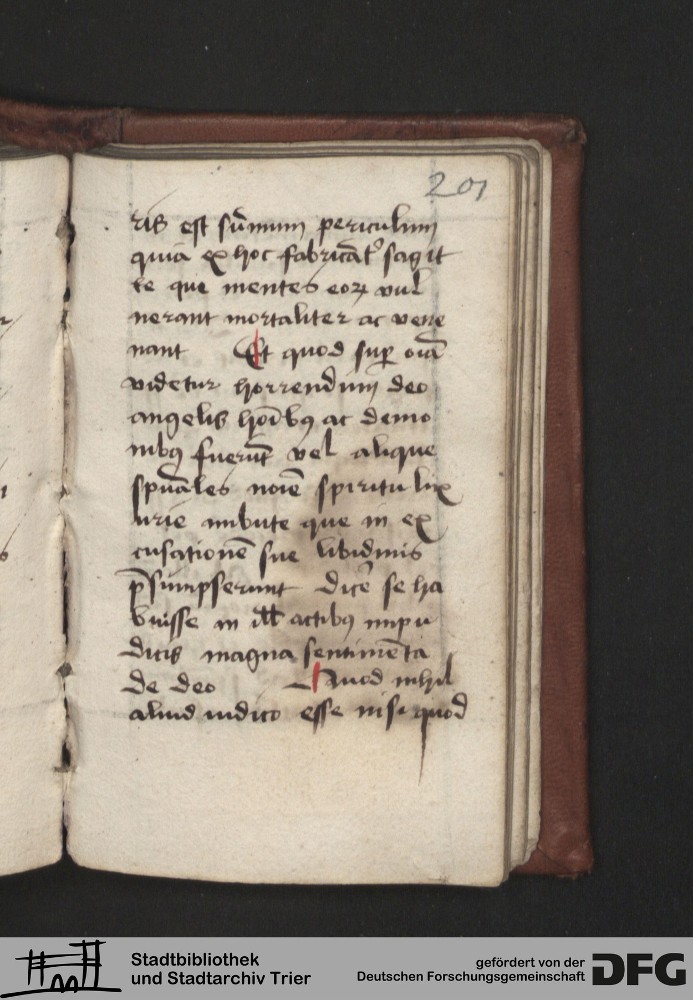 201
ris est sūmum periculum
quia ex hoc fabricāt᷒ sagit
te que mentes eoꝝ vul
nerant mortaliter ac vene
nant Et quod suꝑ oīa
videtur horrendum deo
angelis hoībꝰ ac demo
nibꝰ fuerūt vel alique
spūales noīe spiritu lux
urie imbute que in ex
cusationē sue libidinis
p̄sumpserunt dicē se ha
buisse in ill̄ actibꝰ impu
dicis magna sentimēta
de deo Quod nihil
aliud iudico esse nisi quod
Stadtbibliothek
und Stadtarchiv Trier
gefördert von der
Deutschen Forschungsgemeinschaft
DFG